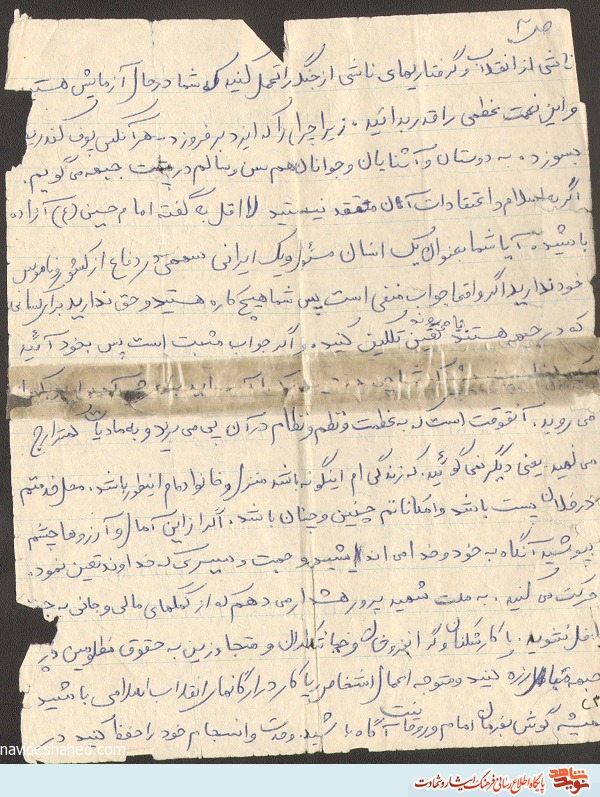 ص ۲
ناشی از انقلاب و گرفتاریهای ناشی از جنگ را تحمل کنید که شما در حال آزمایش هستید
و این نعمت عظمی را قدر بدانید ، زیرا چراغی را که ایزد برفروزد هر آنکس پوف کند ریشش
بسوزد ، به دوستان و آشنایان و جوانان هم سن و سالم در پشت جبهه می گویم .
اگر به اسلام و اعتقادات آن معتقد نیستید لااقل به گفته امام حسین (ع) آزاده
باشید . آیا شما بعنوان یک انسان مسئول و یک ایرانی سهمی در دفاع از کشور و ناموس
خود ندارید اگر واقعا جواب منفی است پس شما هیچ کاره هستید و حق ندارید برای کسانی
که در جبهه هستند یا می روند تعیین تکلیف کنید ، و اگر جواب مثبت است پس بخود آئید
می روید . آنوقت است که به عظمت و نظم و نظام در آن پی می برید و به مادیات کمتر ارج
می نهید . یعنی دیگر نمی گوئید ، که زندگی ام اینگونه باشد منزل و خانواده ام اینطور باشد ، محل خدمتم
در فلان پست باشد و امکاناتم چنین و چنان باشد ، اگر از این آمال و آرزوها چشم
بپوشید آنگاه به خود و خدا می اندیشید و جهت و مسیری که خداوند تعیین نموده
حرکت می کنید . به ملت شهید پرور هشدار می دهم که از کمکهای مالی و جانی به جبهه
غافل نشوید . با کارشکنان و گرانفروشان و جنایتکاران و متجاوزین به حقوق مظلومین در
جبهه مبارزه کنید و متوجه اعمال اشخاص یا کار در ارگانهای انقلاب اسلامی باشید
(۳)
همیشه گوش بفرمان امام و روحانیت آگاه باشید . وحدت و انسجام خود را حفظ کنید در
navideshahed.com
نوید شاهد
پایگاه اطلاع رسانی فرهنگ ایثار و شهادت